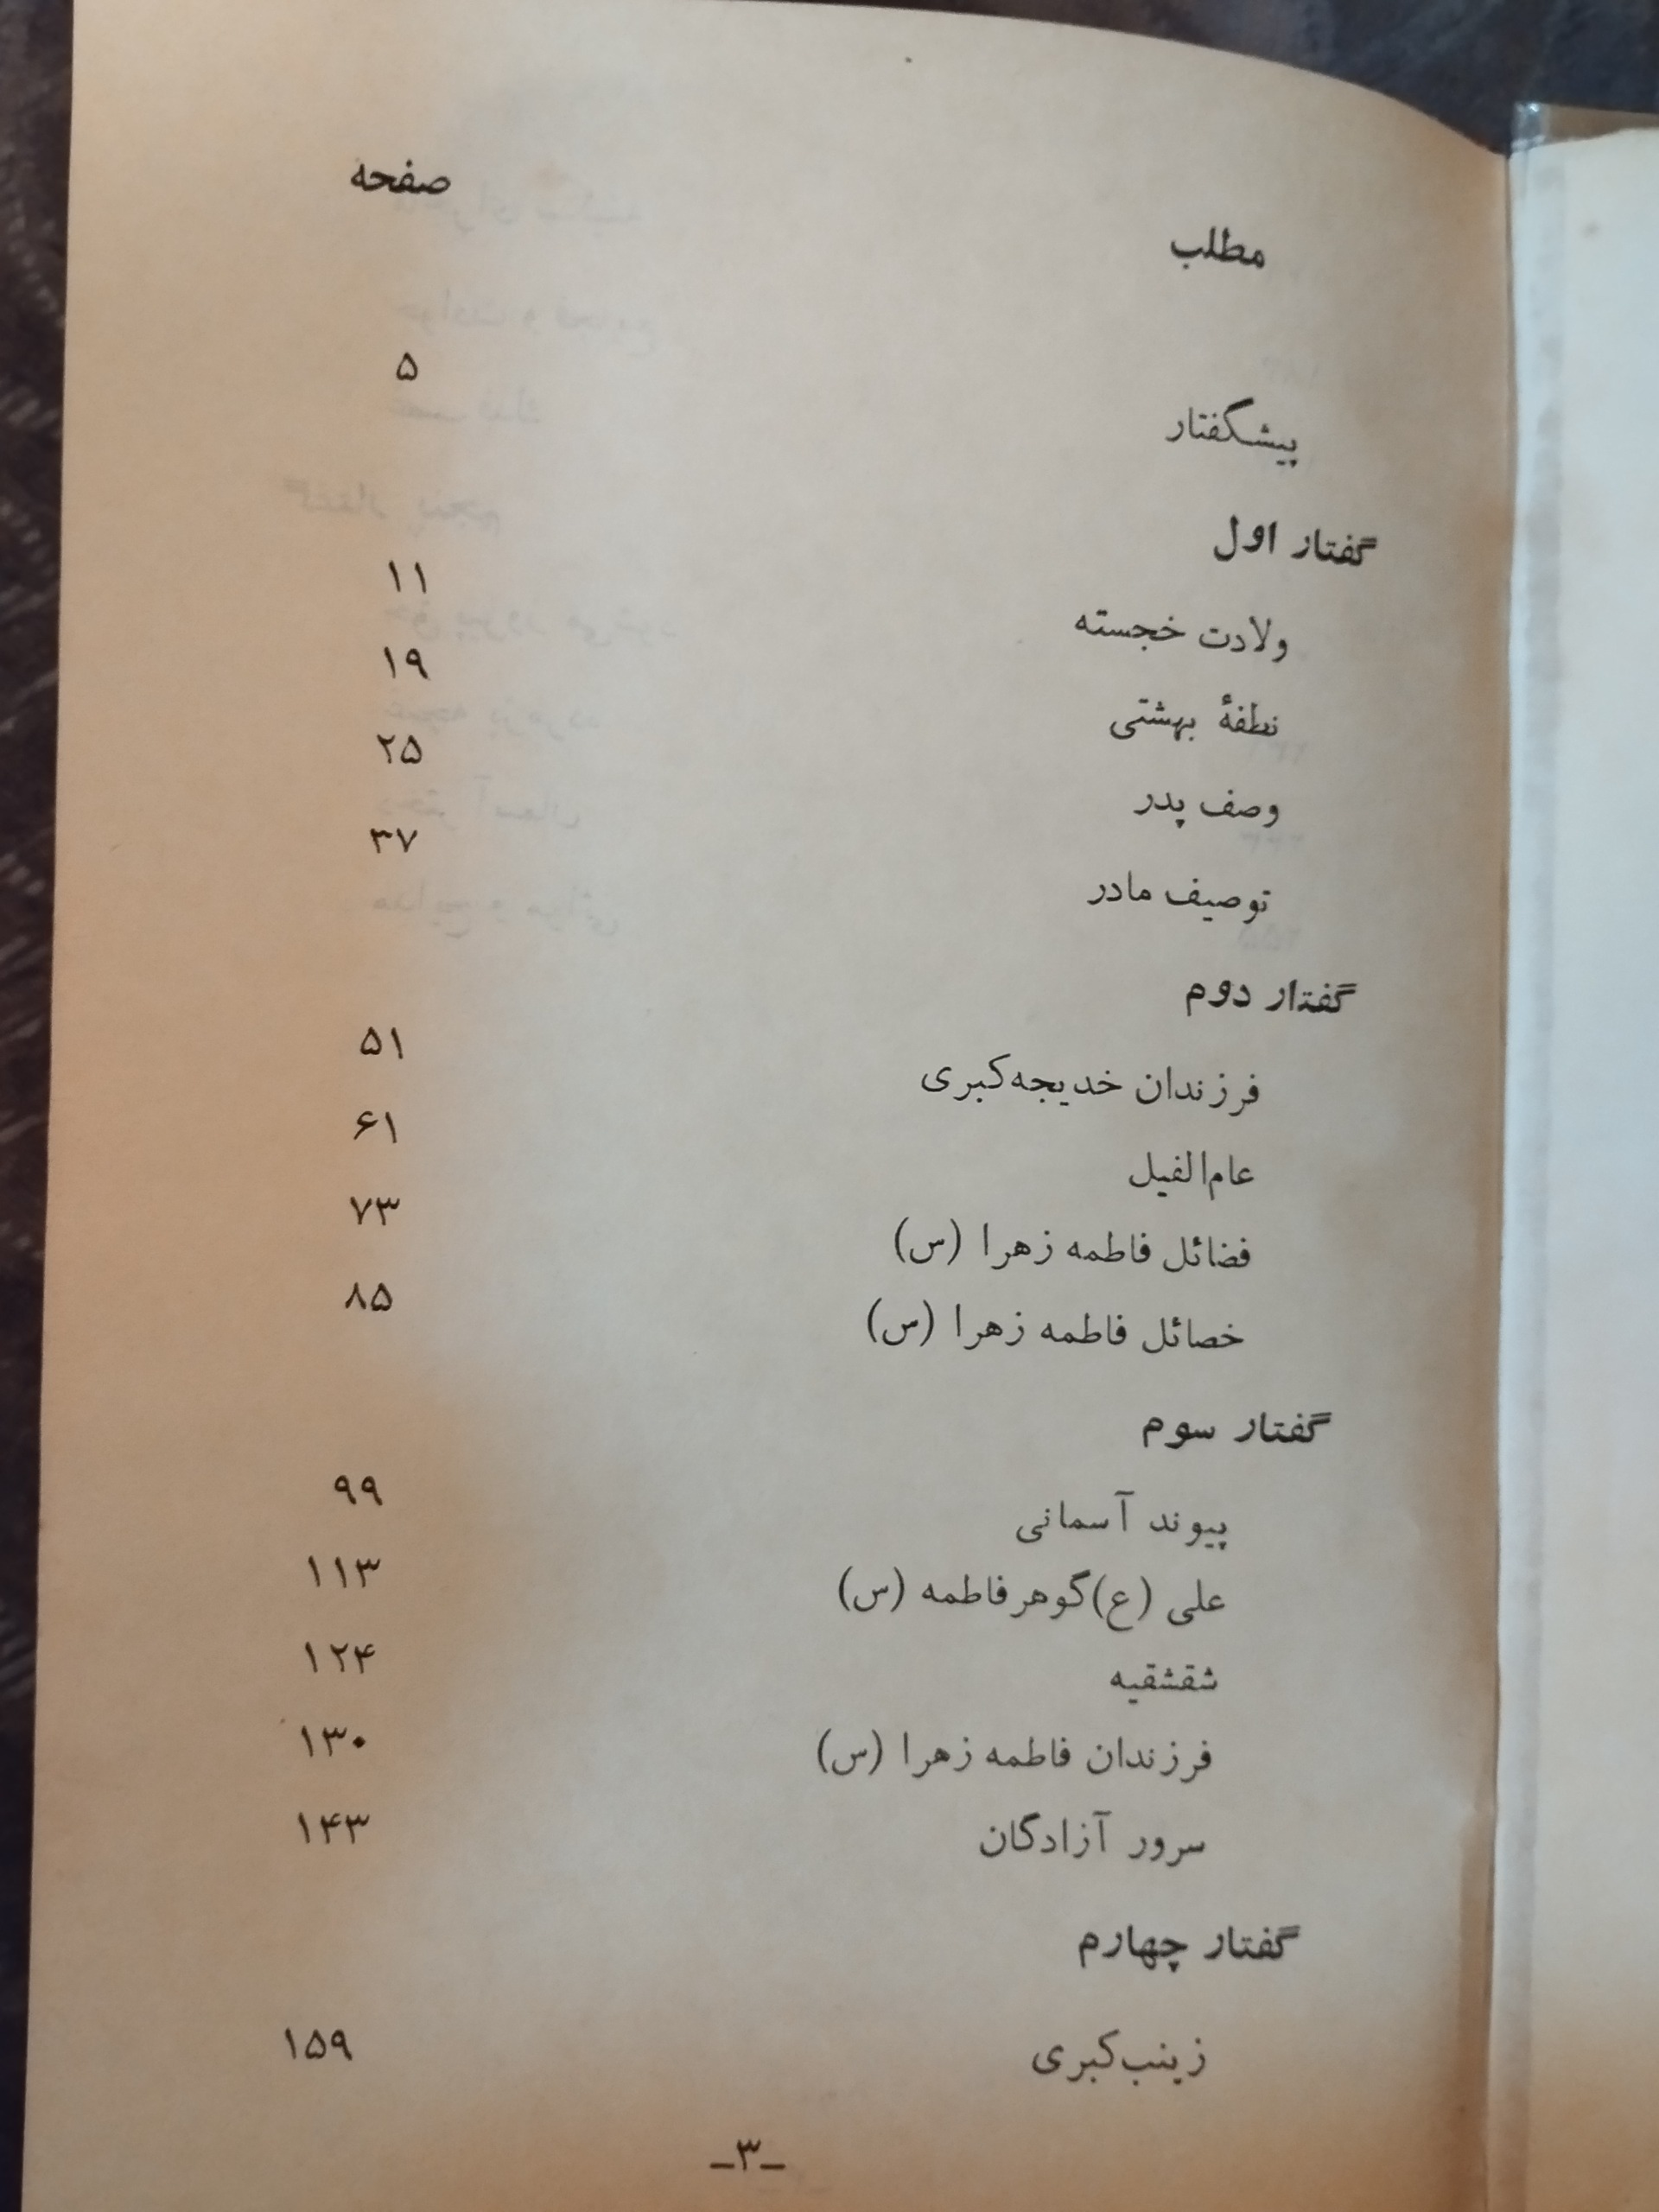 مطلب صفحه
پیشگفتار ۵
گفتار اول
ولادت خجسته ۱۱
نطفهٔ بهشتی ۱۹
وصف پدر ۲۵
توصیف مادر ۳۷
گفتار دوم
فرزندان خدیجه‌کبری ۵۱
عام‌الفیل ۶۱
فضائل فاطمه زهرا (س) ۷۳
خصائل فاطمه زهرا (س) ۸۵
گفتار سوم
پیوند آسمانی ۹۹
علی (ع) گوهر فاطمه (س) ۱۱۳
شقشقیه ۱۲۴
فرزندان فاطمه زهرا (س) ۱۳۰
سرور آزادگان ۱۴۳
گفتار چهارم
زینب‌کبری ۱۵۹
–۳–